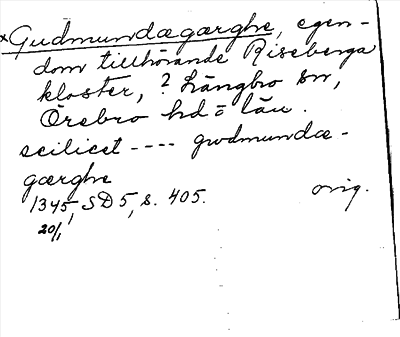 ×Gudmundægærghe, egen-
dom tillhörande Riseberga
kloster, ? Längbro sn,
Örebro hd o län.
scilicet ---- gudmundæ-
gærghe
1345, SD 5, s. 405. orig.
20/1